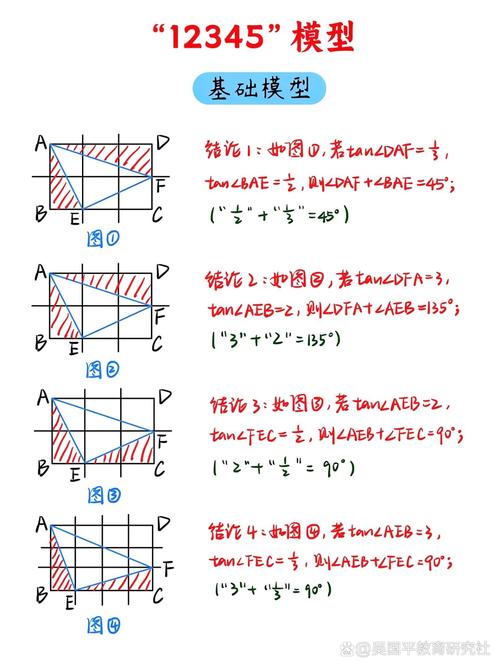 “12345”模型
基础模型
A D
F
B E C
图①
结论1:如图①,若tan∠DAF=1/3,
tan∠BAE=1/2,则∠DAF+∠BAE=45°;
(“1/2”+“1/3”=45°)
A D
F
B E C
图②
结论2:如图②,若tan∠DFA=3,
tan∠AEB=2,则∠DFA+∠AEB=135°;
(“3”+“2”=135°)
A D
F
B E C
图③
结论3:如图③,若tan∠AEB=2,
tan∠FEC=1/2,则∠AEB+∠FEC=90°;
(“2”+“1/2”=90°)
A D
F
B E C
图④
结论4:如图④,若tan∠AEB=3,
tan∠FEC=1/3,则∠AEB+∠FEC=90°;
(“3”+“1/3”=90°)
@吴国平教育研究社